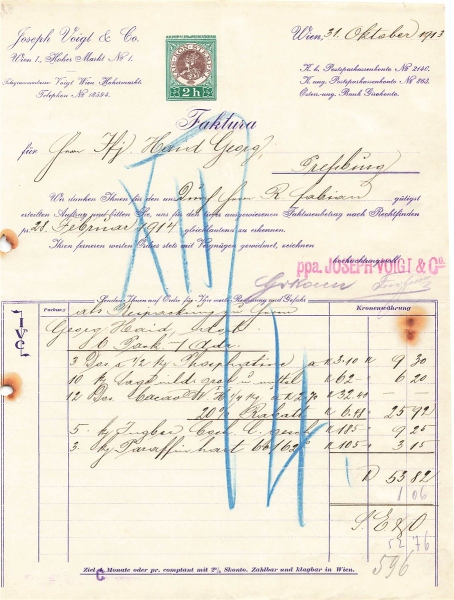 Joseph Voigt & Co.
Wien 1, Hoher Markt No 1.
Telegrammadresse Voigt Wien Hohermarkt.
Telephon No 18594.
2 h
Wien, 31. Oktober 1913
K. k. Postsparkassenkonto No 2140.
K. ung. Postsparkassenkonto No 263.
Österr.-ung. Bank Girokonto.
Faktura
für Herrn Haid Georg,
Preßburg
Wir danken Ihnen für den durch Herrn R. Fabian gütigst
erteilten Auftrag und bitten Sie, uns für den ausgewiesenen Fakturenbetrag nach Rechtfinden
pr. 28. Februar 1914 gleichlautend zu erkennen.
Ihren ferneren werten Ordres stets mit Vergnügen gewidmet, zeichnen
hochachtungsvoll
ppa. JOSEPH VOIGT & Co.
XIII
14
Sandten Ihnen auf Ordre für Ihre werte Rechnung und Gefahr
Packung
Kronenwährung
IVC
als Verpackung zu Herrn
Georg Haid,
3 Dos a 1/2 Kg Phosphatine a K 3·10 K 9 30
10 K 62 6 20
12 Dos Cacao a K 2.70 K 32,40 — —
20% Rabatt K 6.48 25 92
5 Kg Ingber K 185 9 25
3 Kg Paraffin hart K 105 3 15
K 53 82
1 06
S. E & O
52 76
596
Ziel 4 Monate oder pr. comptant mit 2% Skonto. Zahlbar und klagbar in Wien.